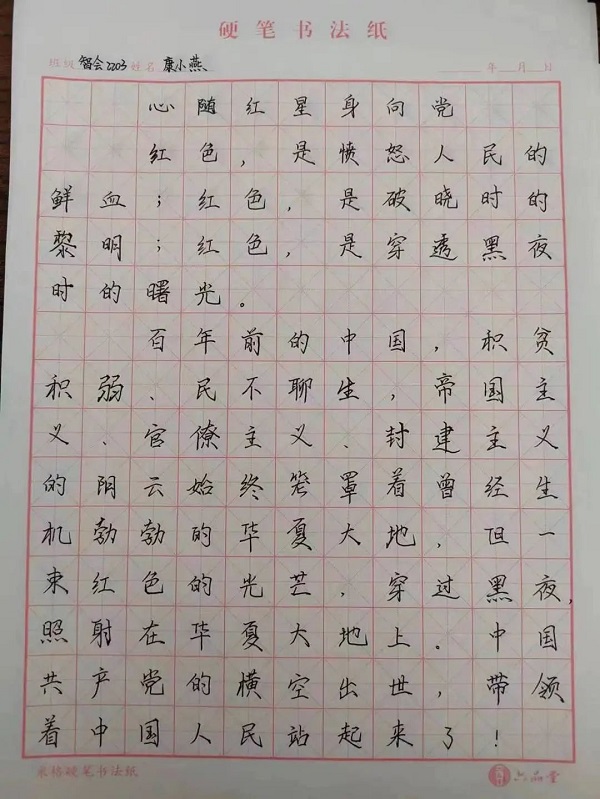 硬笔书法纸
班级 智会2203 姓名 康小燕 年 月 日
心随红星身向党
红色，是愤怒人民的
鲜血；红色，是破晓时的
黎明；红色，是穿透黑夜
时的曙光。
百年前的中国，积贫
积弱、民不聊生，帝国主
义、官僚主义、封建主义
的阴云始终笼罩着曾经生
机勃勃的华夏大地，但一
束红色的光芒，穿过黑夜，
照射在华夏大地上。中国
共产党的横空出世，带领
着中国人民站起来了！
米格硬笔书法纸 六品堂